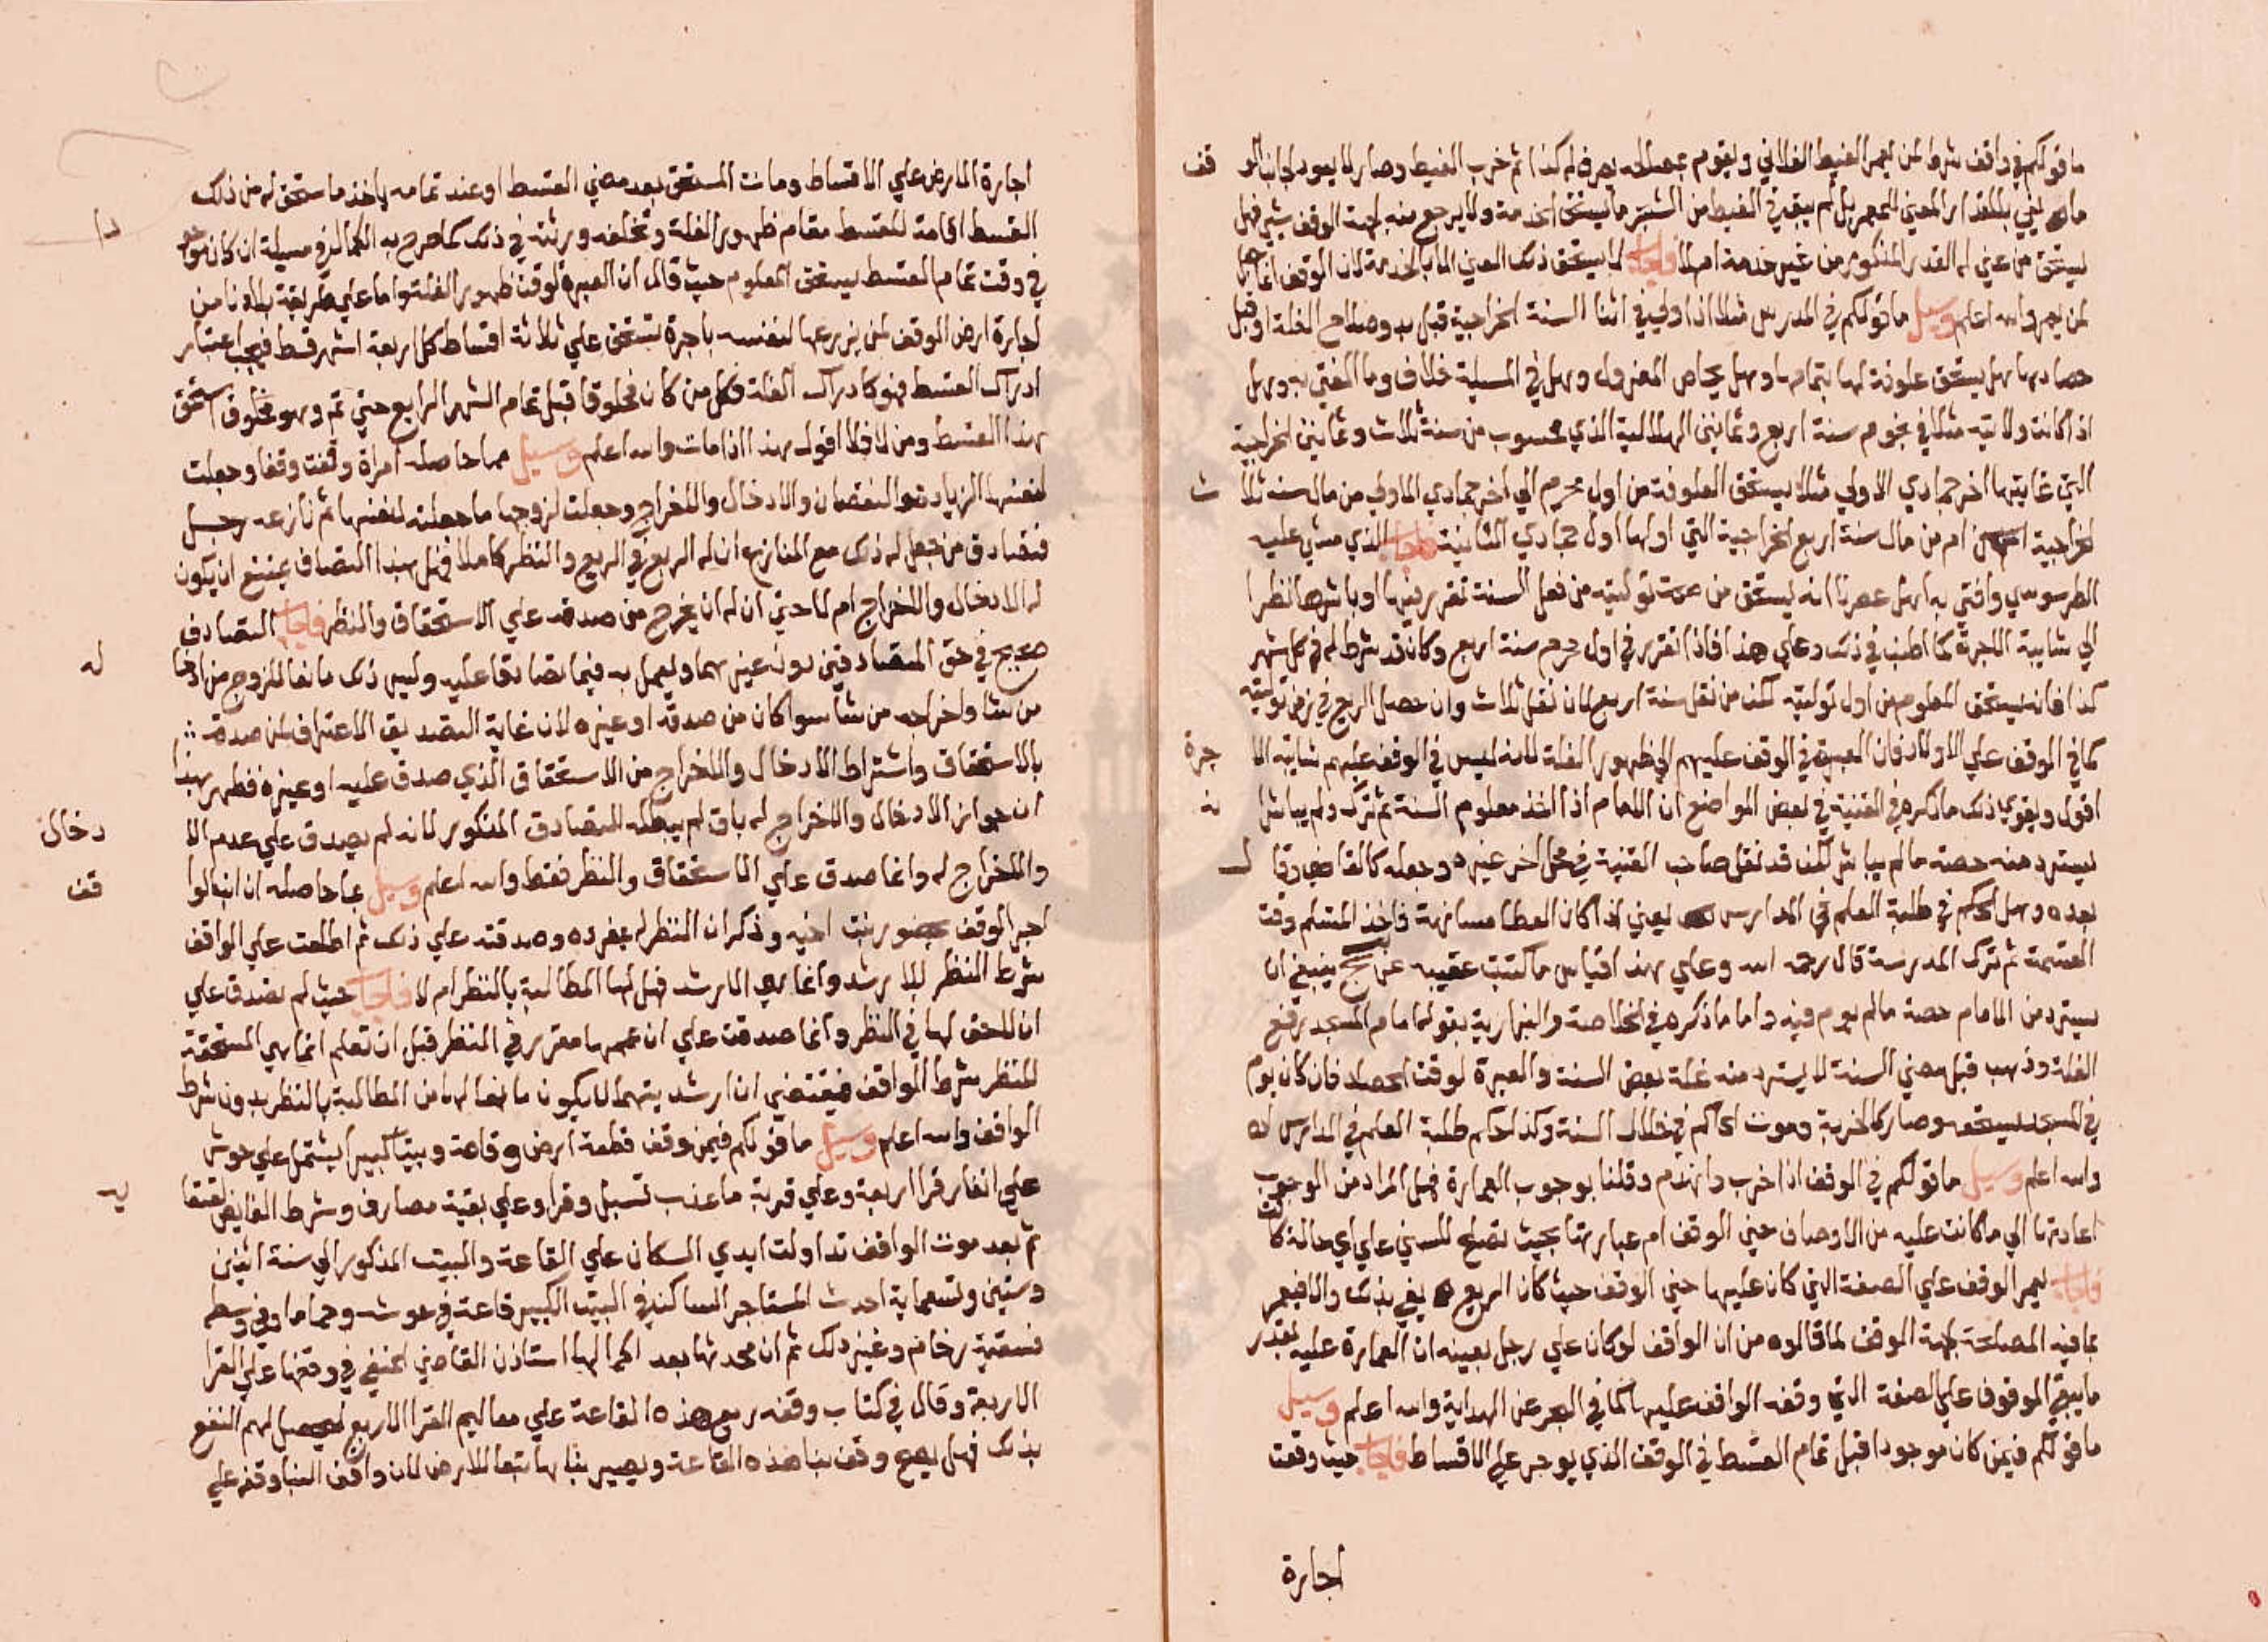 ما قولكم في واقف شرط لمن يعمر الغيط الفلاني ويقوم بمصالحه يصرف له كذا ثم خرب الغيط وصار لا يعود اجانبا لو قف
ما يفي بالمقدار المعين للمعمر بل لم يبق في الغيط من الشجر ما يستحق الخدمة ولا يرجع منه لجهة الوقف شي فهل
يستحق من عين له القدر المذكور من غير خدمة ام لا فاجاب لا يستحق ذلك المعين الا بالخدمة لان الوقف انما جعل
لمن يعمر والله اعلم وسيل ما قولكم في المدرس مثلا اذا ولي في اثنا السنة الخراجية قبل بدو صلاح الغلة او قبل
حصادها هل يستحق علوفة لها بتمامها وهل يحاص المعزول وهل في المسيلة خلاف وما المفتي به وهل
اذا كانت ولايته مثلا في محرم سنة اربع وثمانين الهلالية الذي محسوب من سنة ثلاث وثمانين الخراجية
التي غايتها اخر جمادي الاولي مثلا يستحق العلوفة من اول محرم الي اخر جمادي الاولي من مال سنة ثلاث
الخراجية ام من مال سنة اربع الخراجية التي اولها اول جمادي الثانية فاجاب الذي مشي عليه
الطرسوسي وافتي به اهل عصرنا انه يستحق من حين توليته من فعل السنة تقرر فيها او باشرها نظرا
الي شايبة الاجرة كما اطنب في ذلك وعلي هذا فاذا تقرر في اول محرم سنة اربع وكان قد شرط له في كل شهر
كذا فانه يستحق المعلوم من اول توليته لكن من نفل سنة اربع لا من نفل ثلاث وان حصل الريع في زمن توليته
كما في الوقف علي الاولاد فان العبرة في الوقف عليهم الي ظهور الغلة لانه ليس في الوقف عليهم شايبة الا جرة
اقول ويقوي ذلك ما ذكره في القنية في بعض المواضع ان الامام اذا اخذ معلوم السنة ثم ترك ولم يباشر نه
يسترد منه حصة ما لم يباشر لكن قد نقل صاحب القنية في محل اخر غيره وجعله كالقاضي وقال
بعده وهل الحكم في طلبة العلم في المدارس يعني اذا كان العطا مسانهة فاخذ المتعلم وقت
القسمة ثم ترك المدرسة قال رحمه الله وعلي هذا قياس ما كتبت عقيبه عن بخ ينبغي ان
يسترد من الامام حصة ما لم يوم فيه واما ما ذكره في الخلاصة والبزازية بقوله امام المسجد رفع
الغلة وذهب قبل مضي السنة لا يسترد منه غلة بعض السنة والعبرة لوقت الحصاد فان كان يوم
في المسجد يستحقه وصار كالجزية وموت الحاكم في خلال السنة وكذا حكم طلبة العلم في المدارس
والله اعلم وسيل ما قولكم في الوقف اذا خرب وانهدم وقلنا بوجوب العمارة فهل المراد من الوجوب
اعادتها الي ما كانت عليه من الاوصاف حين الوقف ام عمارتها بحيث تصلح للسكني علي اي حالة كا نت
فاجاب يعمر الوقف علي الصفة التي كان عليها حين الوقف حيث كان الريع يفي بذلك والا فيعمر
بما فيه المصلحة لجهة الوقف لما قالوه من ان الواقف لو كان علي رجل بعينه ان العمارة عليه بقدر
ما يبقي الموقوف علي الصفة التي وقفه الواقف عليها كما في البحر عن الهداية والله اعلم وسيل
ما قولكم فيمن كان موجودا قبل تمام القسط في الوقف الذي يوجر علي الاقساط فاجاب حيث وقعت
اجارة
اجارة الارض علي الاقساط ومات المستحق بعد مضي القسط او عند تمامه ياخذ ما يستحق له من ذلك
القسط اقامة للقسط مقام ظهور الغلة وتخلفه ورثته في ذلك كما صرح به الكمال في مسيلة ان كان موجو دا
في وقت تمام القسط يستحق المعلوم حيث قال ان العبرة لوقت ظهور الغلة واما علي طريقة بلادنا من
اجارة ارض الوقف لمن يزرعها لنفسه باجرة تستحق علي ثلاثة اقساط كل اربعة اشهر قسط فيجب اعتبار
ادراك القسط فهو كادراك الغلة فكل من كان مخلوقا قبل تمام الشهر الرابع حتي تم وهو مخلوق استحق
هذا القسط ومن لا فلا اقول هذا اذا مات والله اعلم وسيل بما حاصله امراة وقفت وقفا وجعلت
لنفسها الزيادة والنقصان والادخال والاخراج وجعلت لزوجها ما جعلته لنفسها ثم نازعه رجل
فتصادق من جعل له ذلك مع المنازع ان له الربع في الريع والنظر كاملا فهل هذا التصادق يمنع ان يكون
له الادخال والاخراج ام لا حتي ان له ان يخرج من صدقه علي الاستحقاق والنظر فاجاب التصادق
صحيح في حق المتصادقين دون غيرهما ويعمل به فيما تصادقا عليه وليس ذلك مانعا للزوج من ادخا له
من شا واخراجه من شا سوا كان من صدقه او غيره لان غاية التصديق الاعتراف لمن صدقه
بالاستحقاق واشتراط الادخال والاخراج من الاستحقاق الذي صدق عليه او غيره فظهر بهذا
ان جواز الادخال والاخراج له باق لم يبطله التصادق المذكور لانه لم يصدق علي عدم الا دخال
والاخراج له وانما صدق علي الاستحقاق والنظر فقط والله اعلم وسيل بما حاصله ان ابن الوا قف
اجر الوقف بحضور بنت اخيه وذكر ان النظر له بمفرده وصدقته علي ذلك ثم اطلعت علي الواقف
شرط النظر للارشد وانها هي الارشد فهل لها المطالبة بالنظر ام لا فاجاب حيث لم تصدق علي
ان لا حق لها في النظر وانما صدقت علي ان عمها مقرر في النظر قبل ان تعلم انها هي المستحقة
للنظر بشرط الواقف فيقتضي ان ارشديتهما لا يكون مانعا لها من المطالبة بالنظر بدون شرط
الواقف والله اعلم وسيل ما قولكم فيمن وقف قطعة ارض وقاعة وبيتا كبيرا يشتمل علي حوش
علي انفار قرا اربعة وعلي قربة ما عذب تسبل وقرا وعلي بقية مصارف وشرط الفايض لعتقا يه
ثم بعد موت الواقف تداولت ايدي السكان علي القاعة والبيت المذكور الي سنة اثنين
وستين وتسعماية احدث المستاجر الساكن في البيت الكبير قاعة في حوشه وحماما وفي وسطه
فسقية رخام وغير ذلك ثم ان محدثها بعد اكمالها استاذن القاضي الحنفي في وقفها علي القرا
الاربعة وقال في كتاب وقفه ريع هذه القاعة علي معاليم القرا الاربع ليحصل لهم النفع
بذلك فهل يصح وقف بنا هذه القاعة ويصير بناها تبعا للارض لان واقف البنا وقفه علي